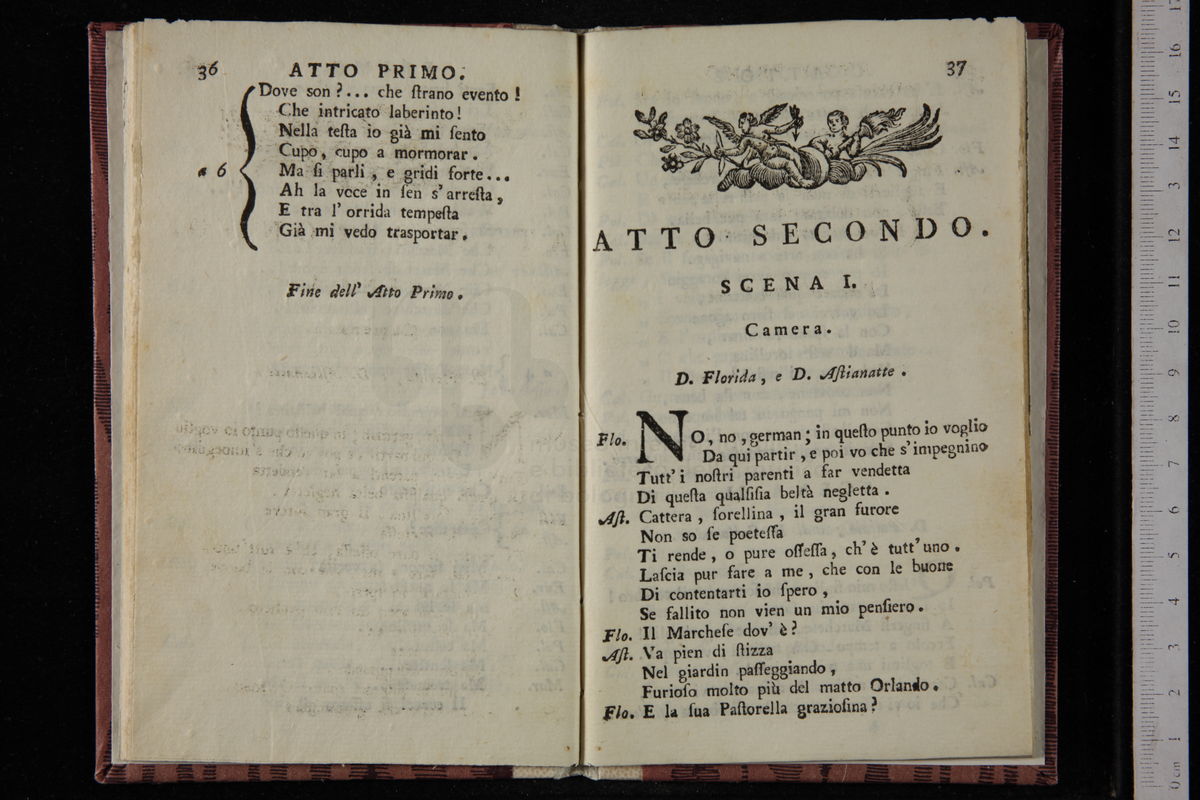 36 ATTO PRIMO.
Dove son?... che ſtrano evento!
Che intricato laberinto!
Nella teſta io già mi ſento
Cupo, cupo a mormorar.
a 6 Ma ſi parli, e gridi forte...
Ah la voce in ſen s'arreſta,
E tra l'orrida tempeſta
Già mi vedo traſportar.
Fine dell' Atto Primo.
37
ATTO SECONDO.
SCENA I.
Camera.
D. Florida, e D. Aſtianatte.
Flo. NO, no, german; in queſto punto io voglio
Da qui partir, e poi vo che s'impegnino
Tutt' i noſtri parenti a far vendetta
Di queſta qualſiſia beltà negletta.
Aſt. Cattera, ſorellina, il gran furore
Non so ſe poeteſſa
Ti rende, o pure oſſeſſa, ch'è tutt'uno.
Laſcia pur fare a me, che con le buone
Di contentarti io ſpero,
Se fallito non vien un mio penſiero.
Flo. Il Marcheſe dov' è?
Aſt. Va pien di ſtizza
Nel giardin paſſeggiando,
Furioſo molto più del matto Orlando.
Flo. E la ſua Paſtorella grazioſina?
17
16
15
14
13
12
11
10
9
8
7
6
5
4
3
2
1
0 cm